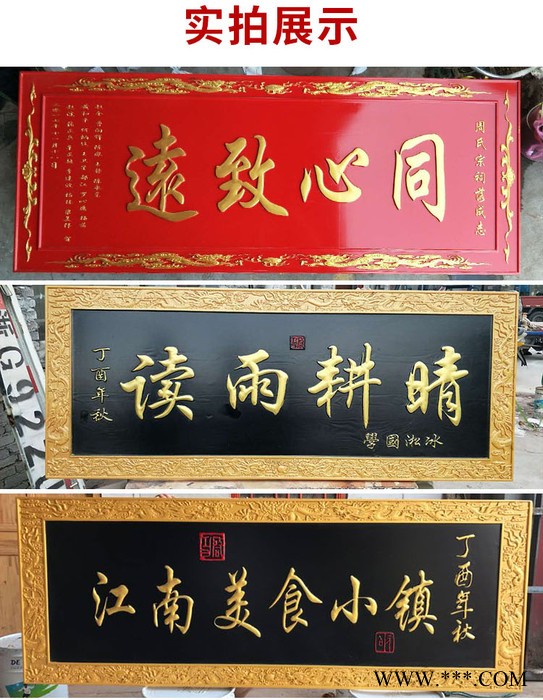 实拍展示
周氏宗祠落成志
同心致遠
晴耕雨读
冰淞國學
丁酉年秋
丁酉年秋
江南美食小镇
WWW.***.COM